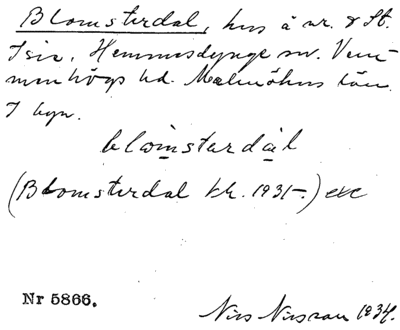 Blomsterdal, hus å nr. 8 St.
Isie, Hemmesdynge sn. Vem-
menhögs hd. Malmöhus län.
I byn.
blomstardal
(Blomsterdal kk. 1931-.)
Nr 5866.
Nils Nilsson 1934.